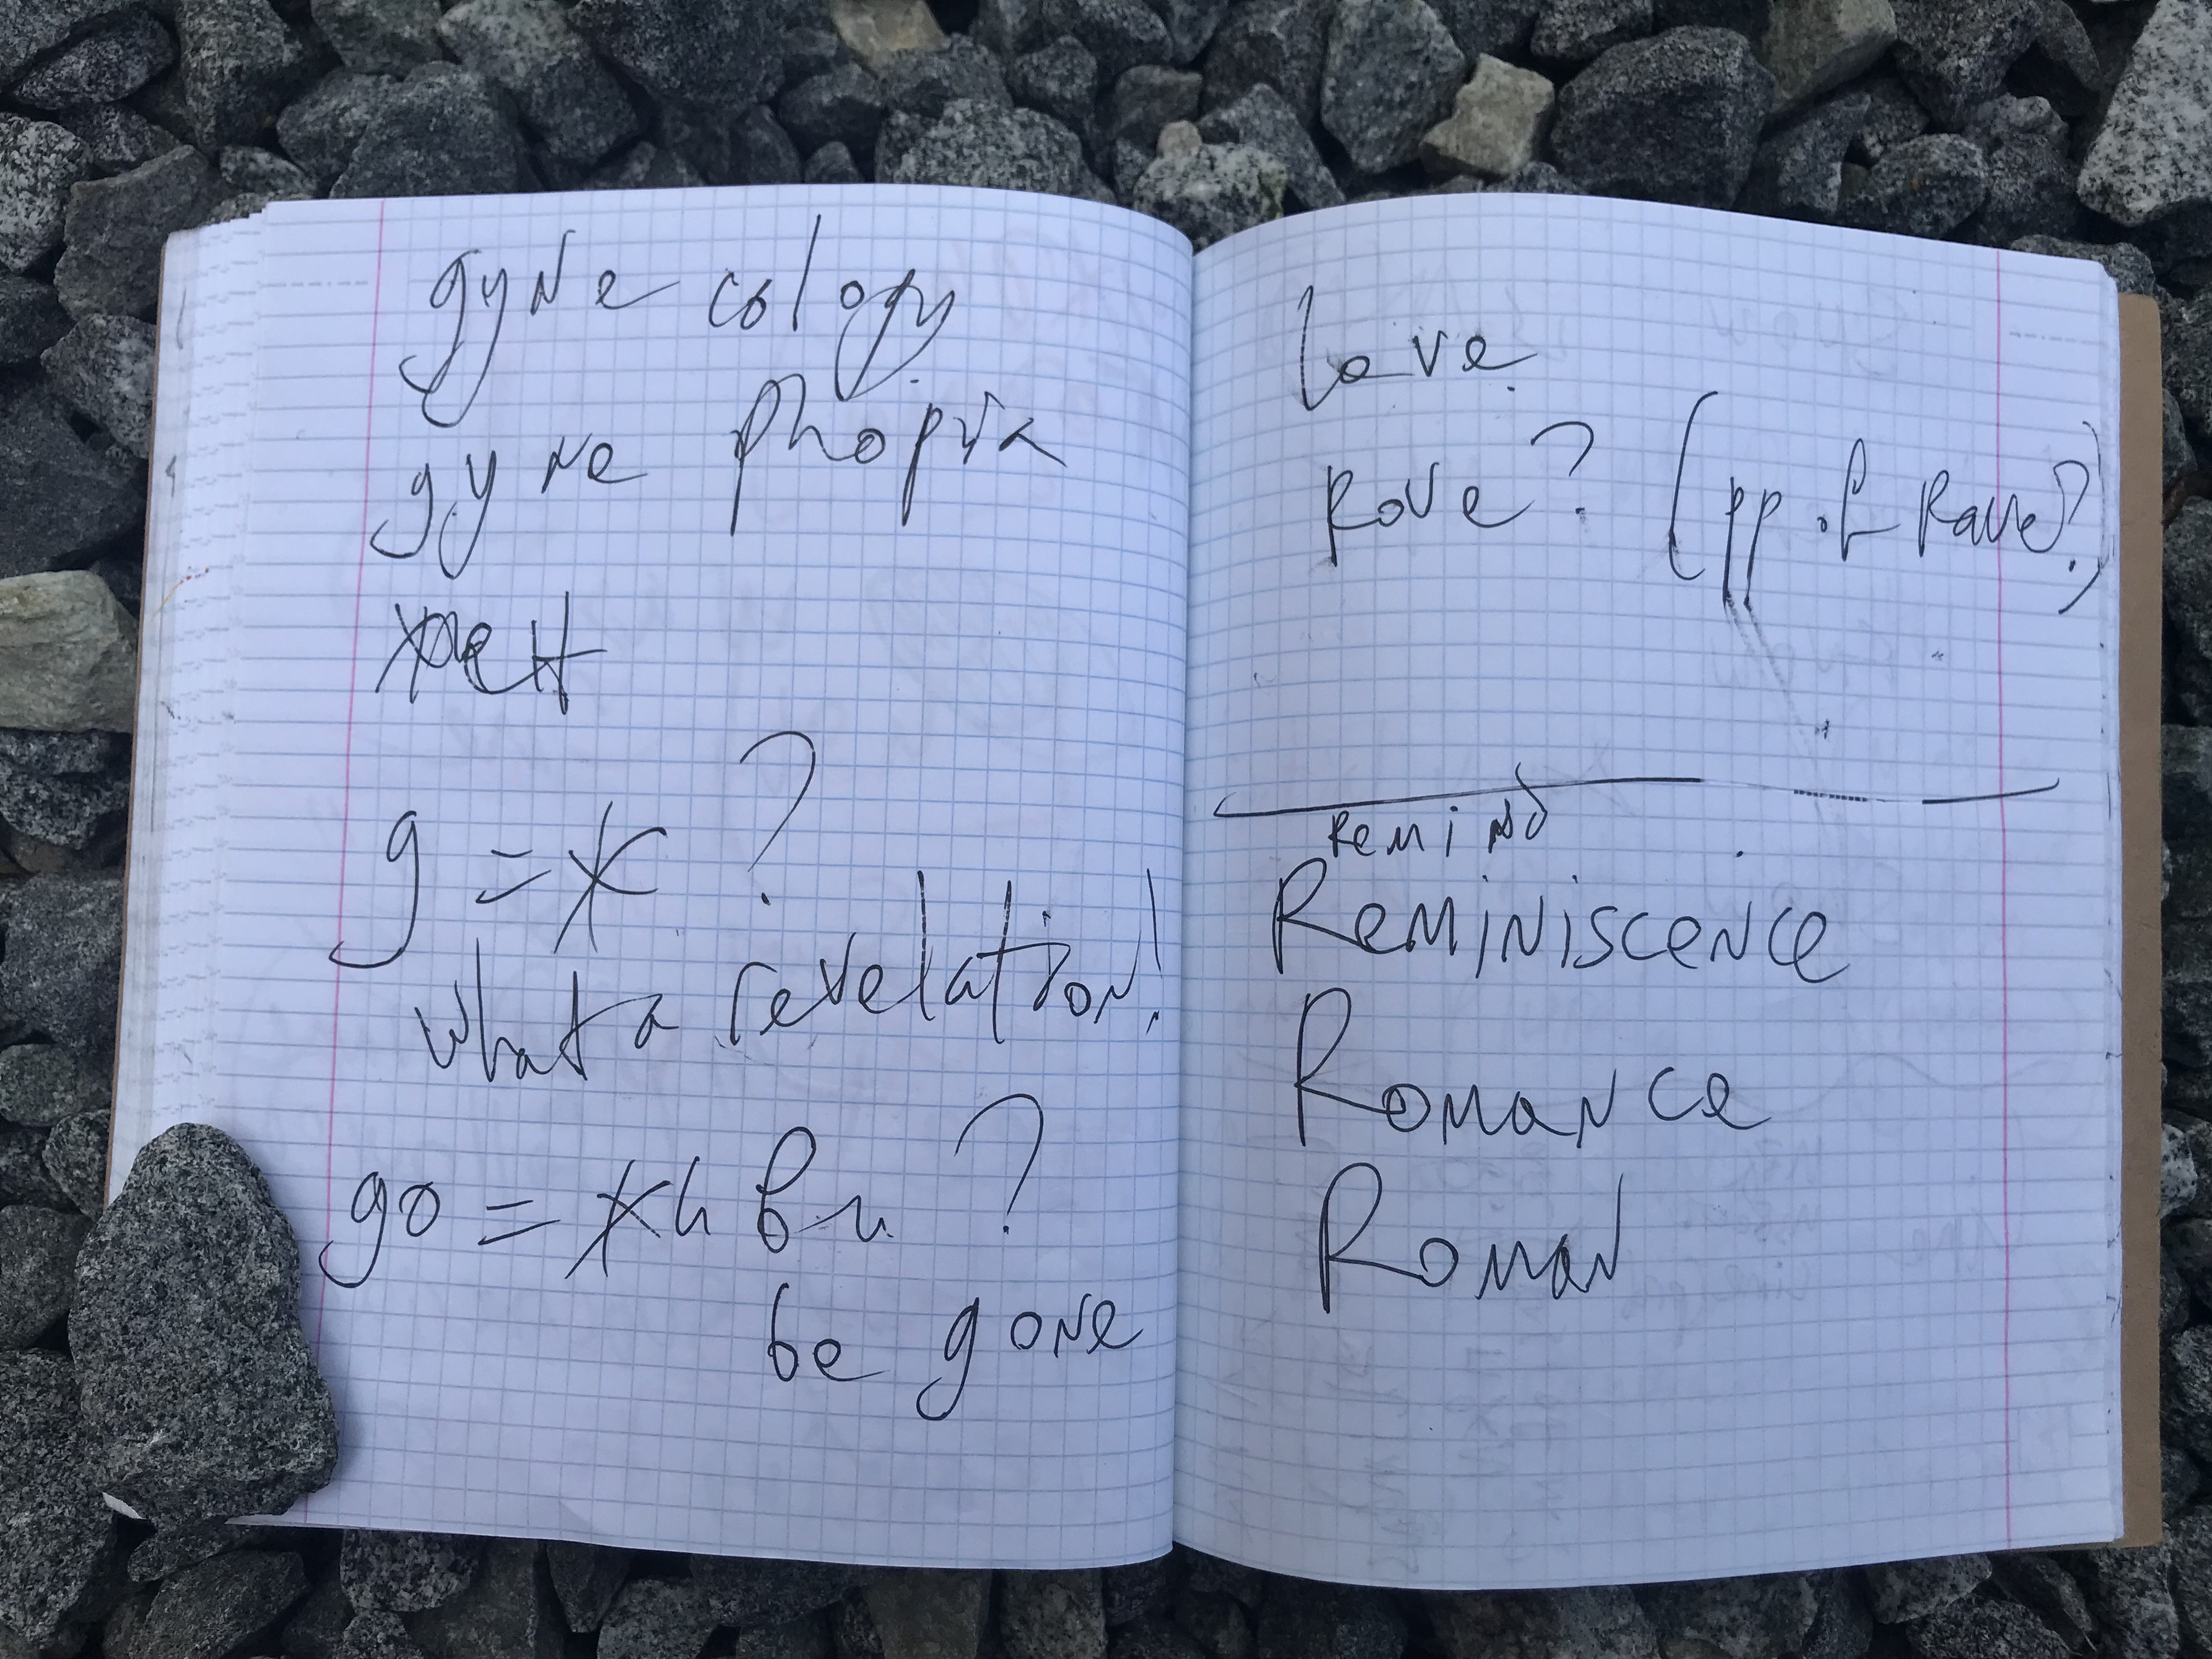 gyne cology
gyne
g = ж ?
what a revelation!
go = живи ?
be gone
love.
Rove? (pp. of Rave?)
Remind
Reminiscence
Romance
Roman